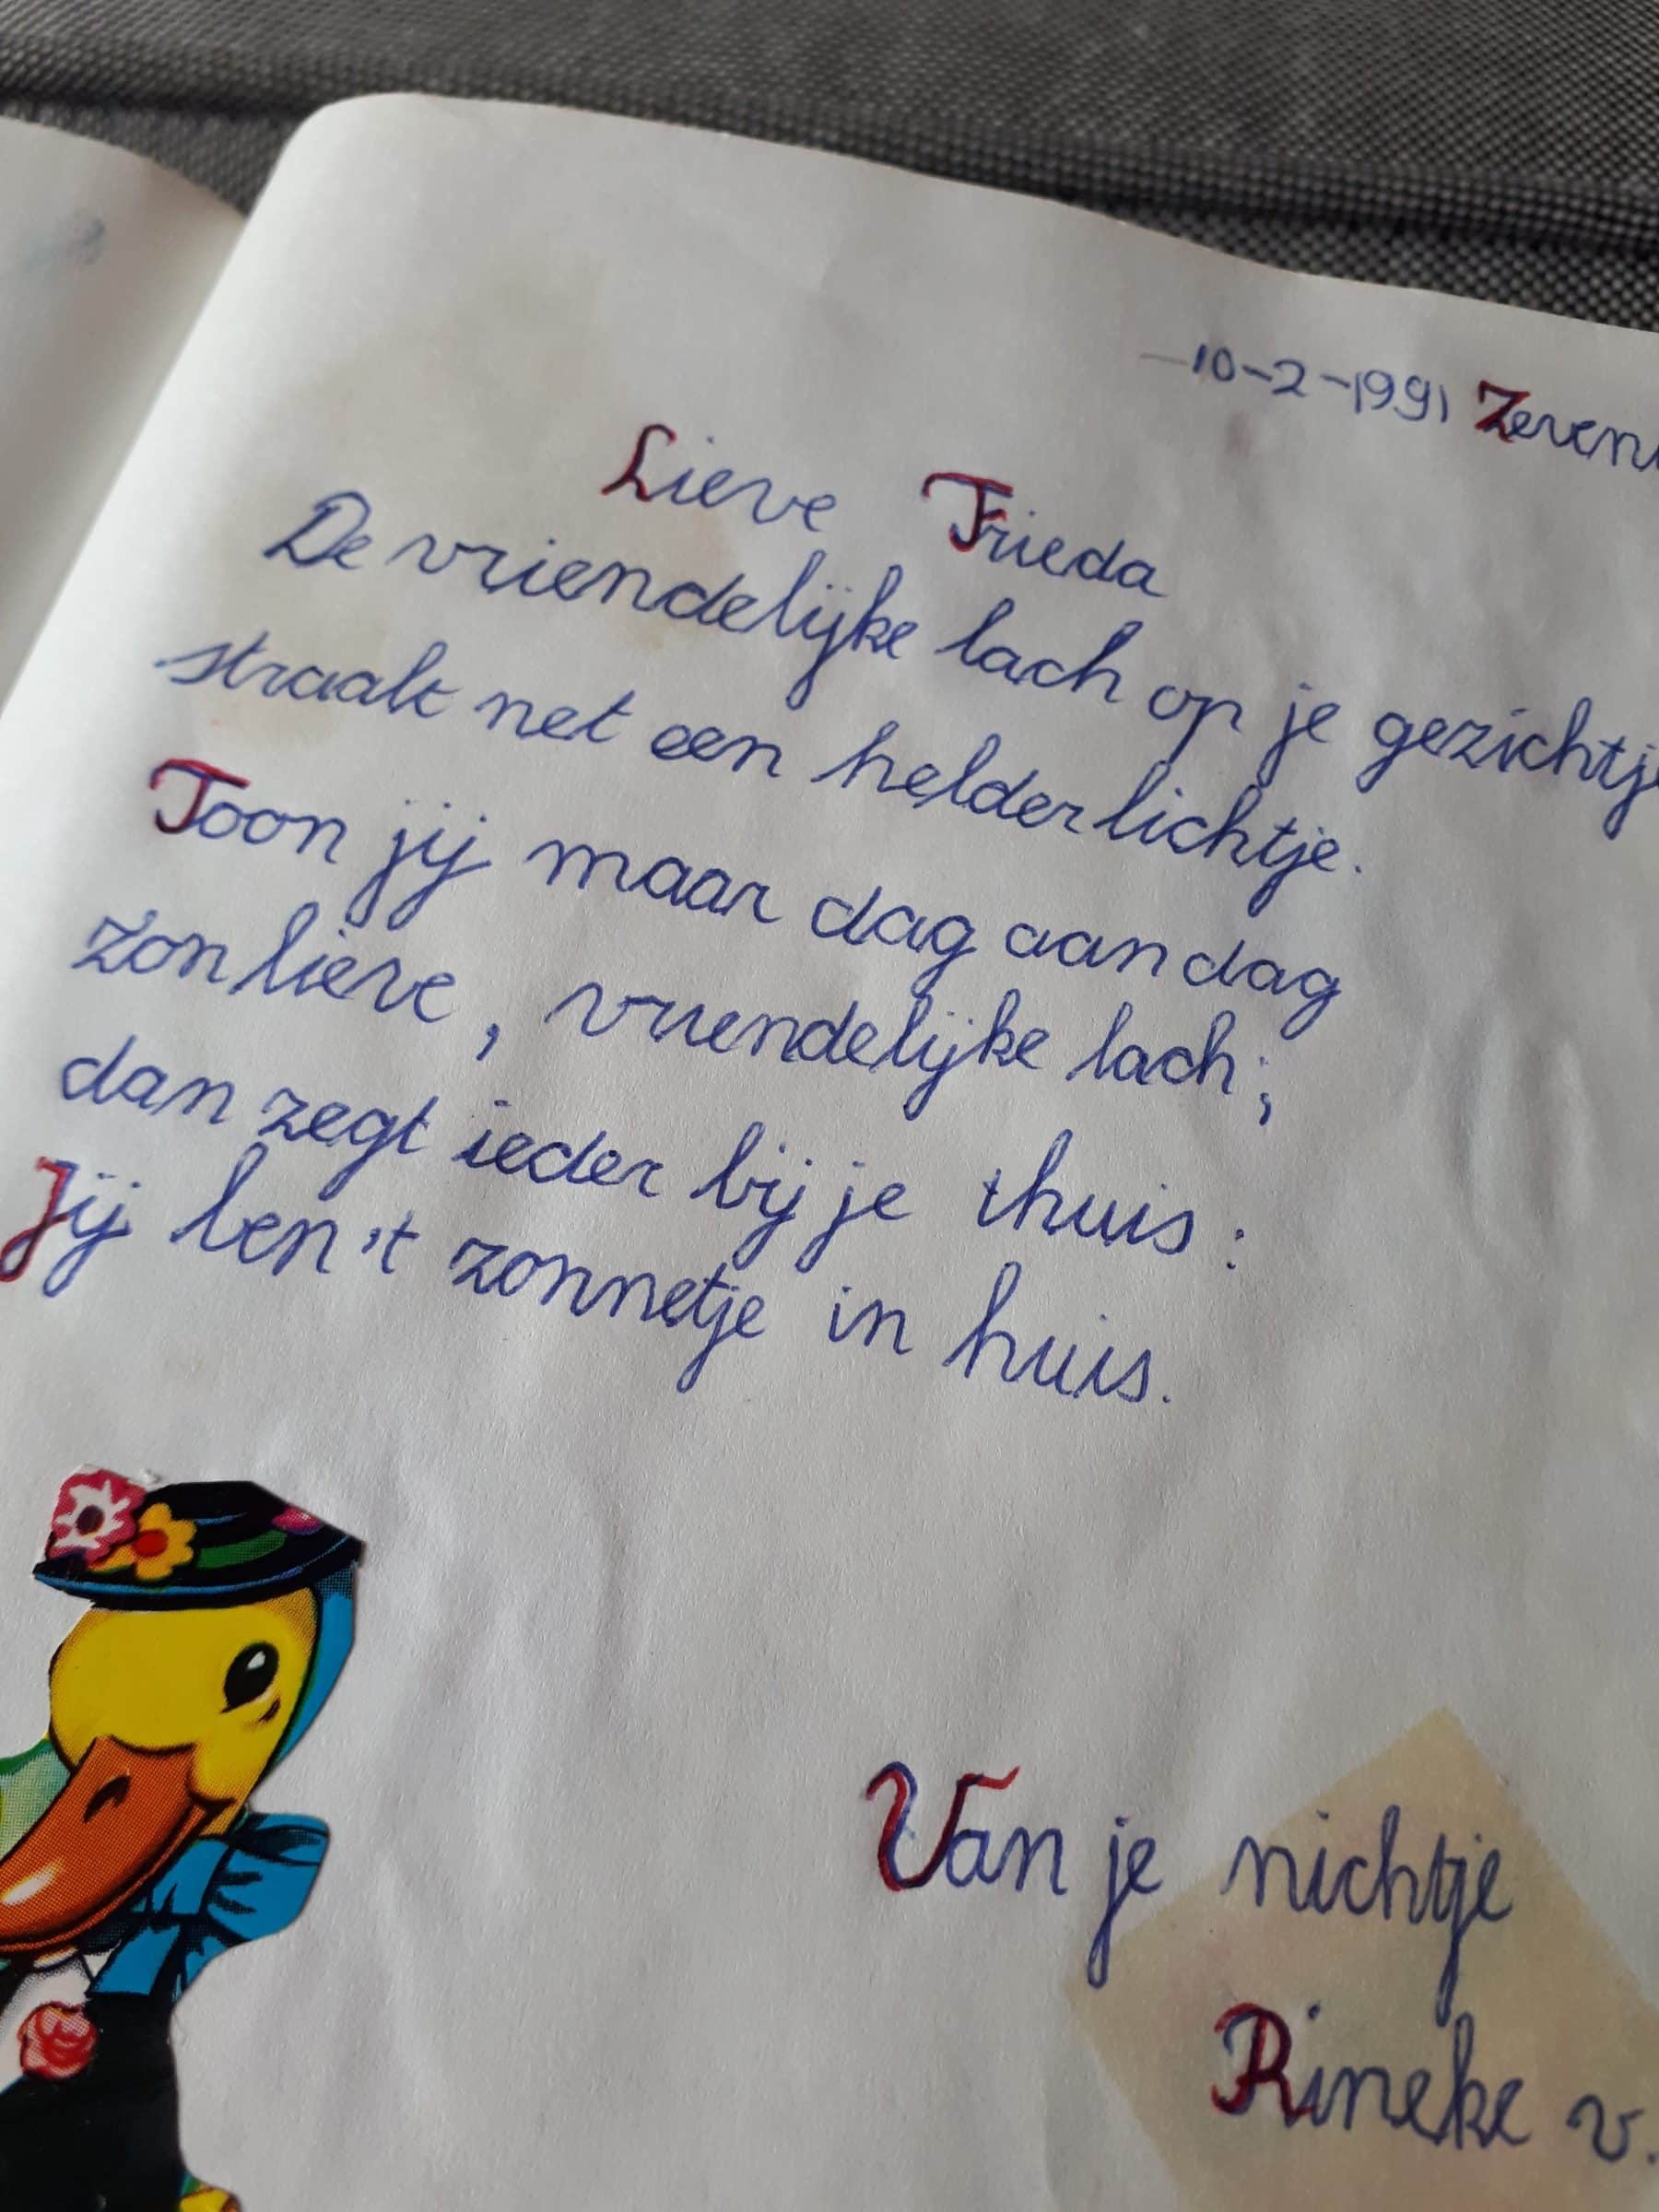 10-2-1991 Zeven
Lieve Frieda
De vriendelijke lach op je gezichtje
straalt net een helder lichtje.
Toon jij maar dag aan dag
zon lieve, vriendelijke lach;
dan zegt ieder bij je thuis:
Jij ben't zonnetje in huis.
Van je nichtje
Rineke v.